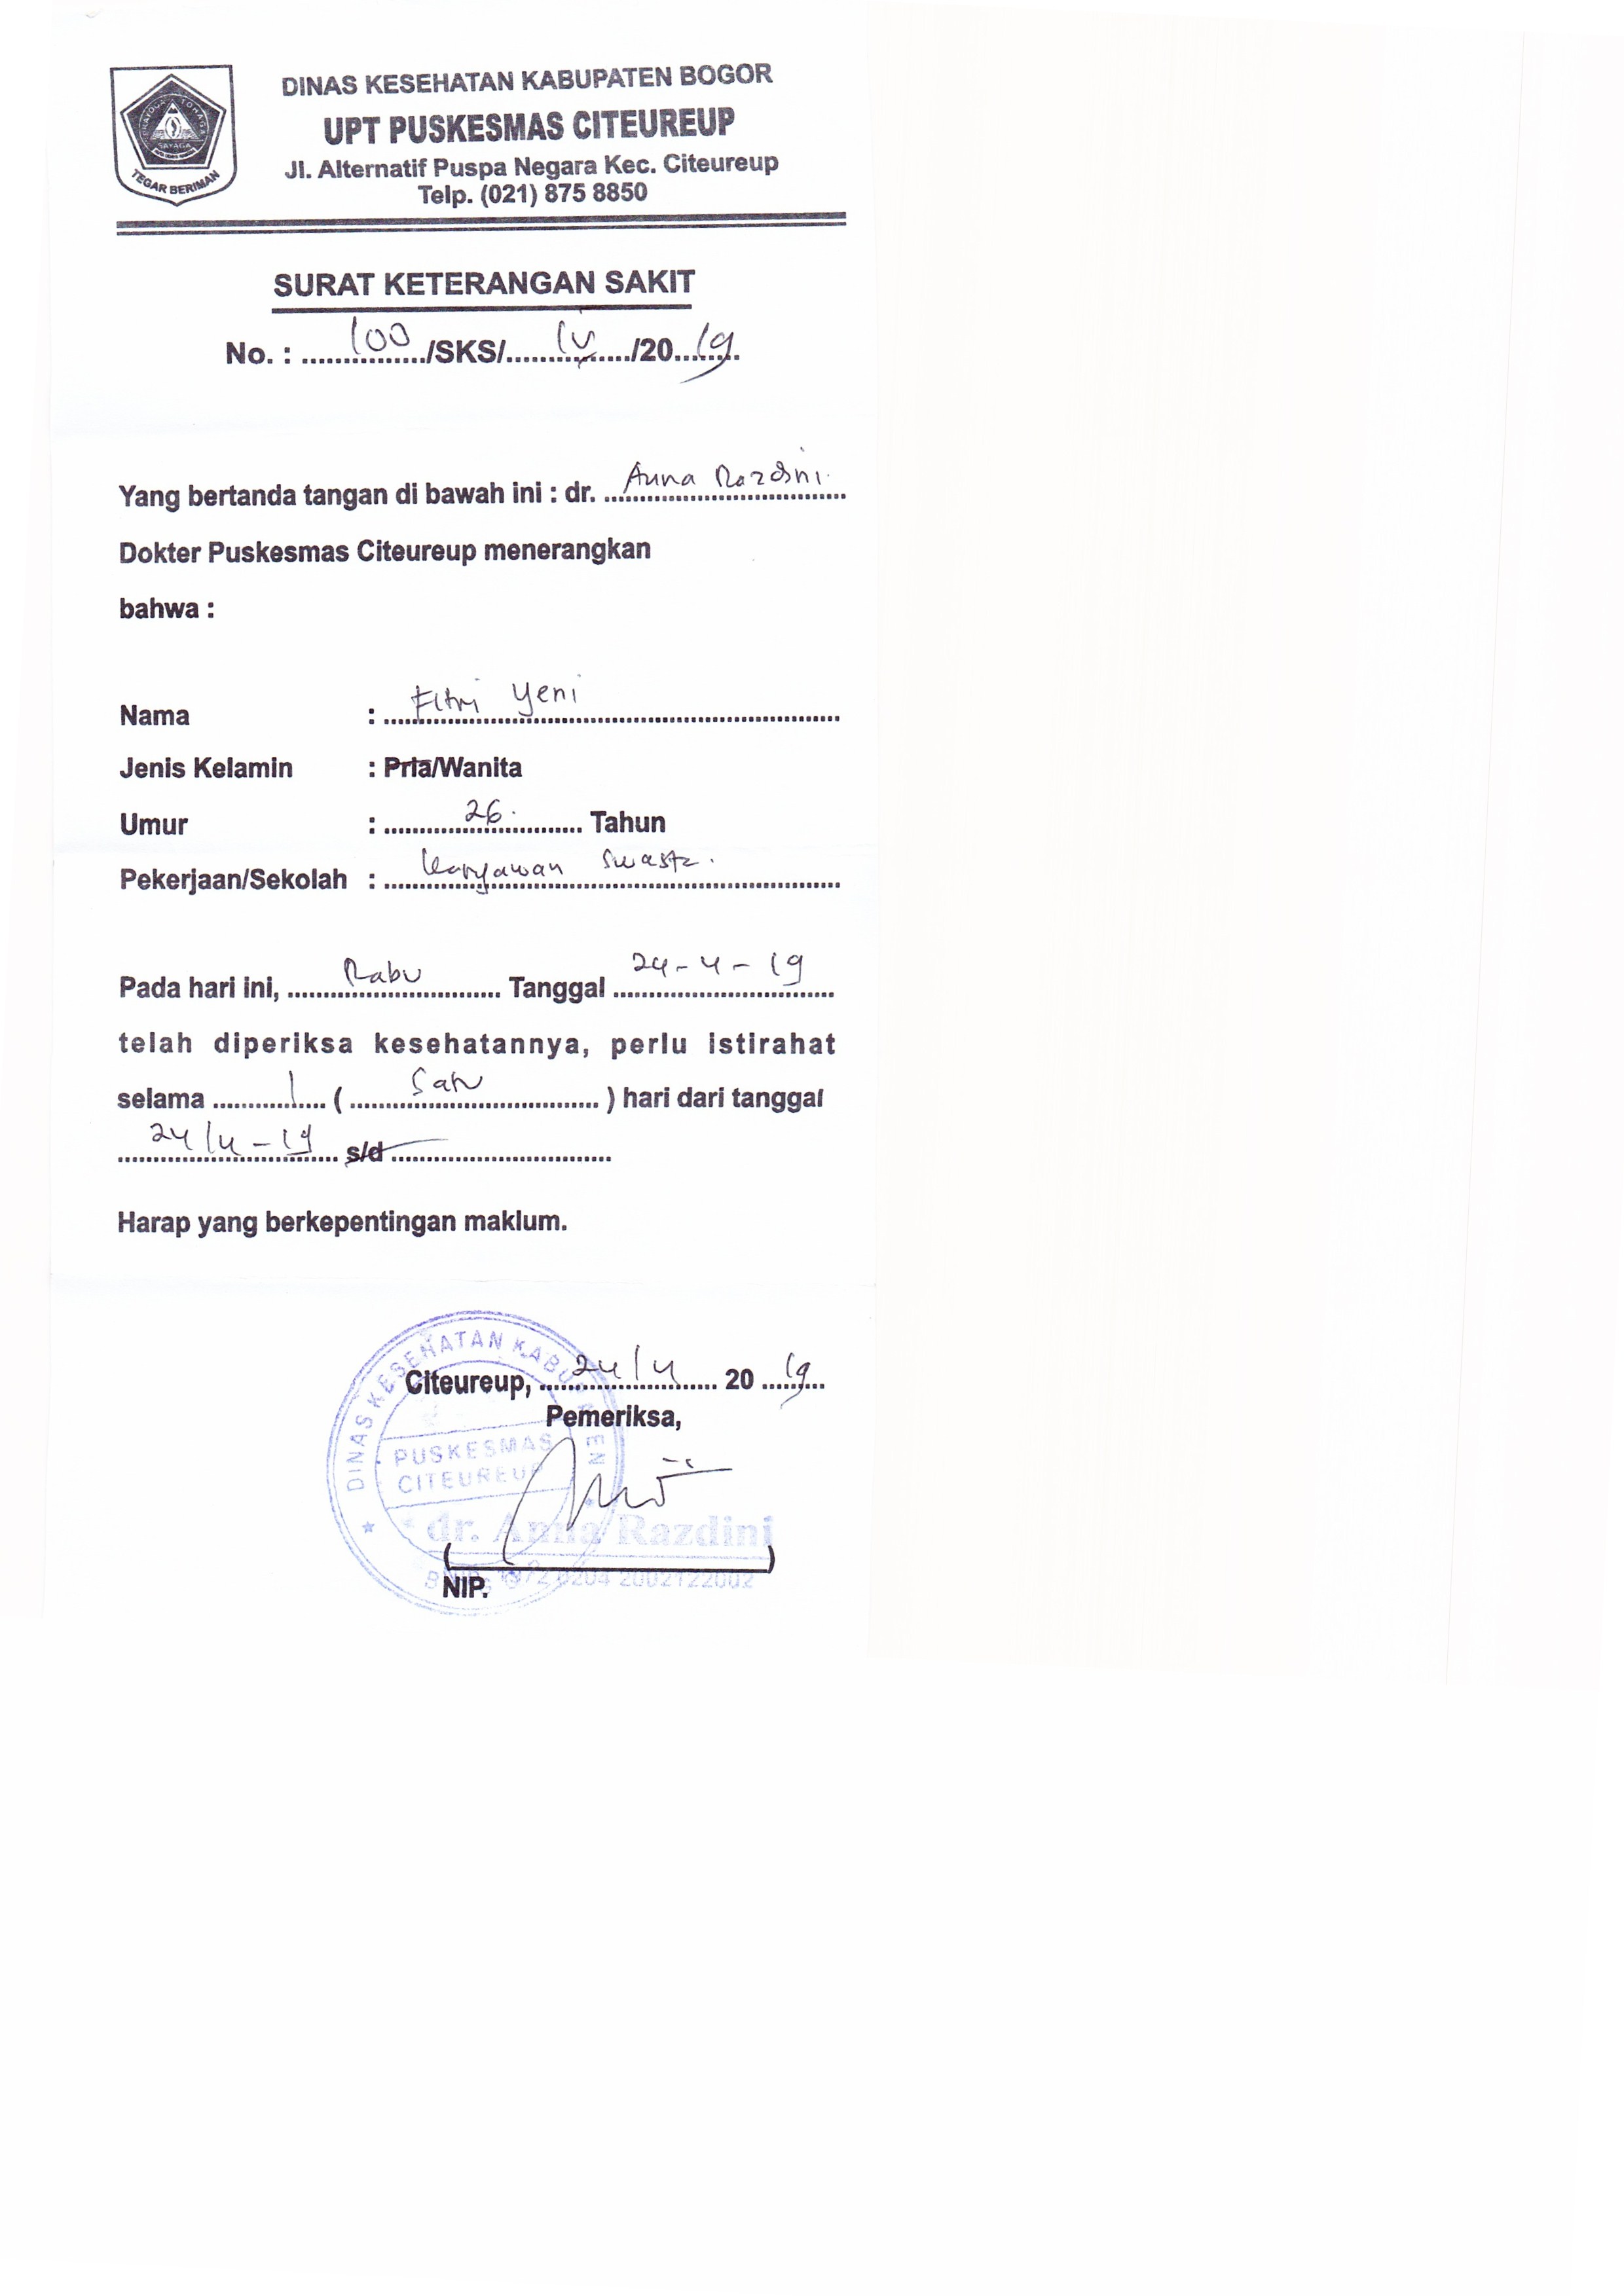 DINAS KESEHATAN KABUPATEN BOGOR
UPT PUSKESMAS CITEUREUP
Jl. Alternatif Puspa Negara Kec. Citeureup
Telp. (021) 875 8850
TEGAR BERIMAN
SURAT KETERANGAN SAKIT
No. : 100 /SKS/ IV /20 19
Yang bertanda tangan di bawah ini : dr. Anna Razdini.
Dokter Puskesmas Citeureup menerangkan
bahwa :
Nama : Fitri Yeni
Jenis Kelamin : Pria/Wanita
Umur : 26. Tahun
Pekerjaan/Sekolah : Karyawan Swasta.
Pada hari ini, Rabu Tanggal 24-4-19
telah diperiksa kesehatannya, perlu istirahat
selama 1 ( Satu ) hari dari tanggal
24/4-19 s/d
Harap yang berkepentingan maklum.
Citeureup, 24/4 20 19
Pemeriksa,
DINAS KESEHATAN KABUPATEN
PUSKESMAS
CITEUREUP
dr. Anna Razdini
NIP. 0204 2002122002